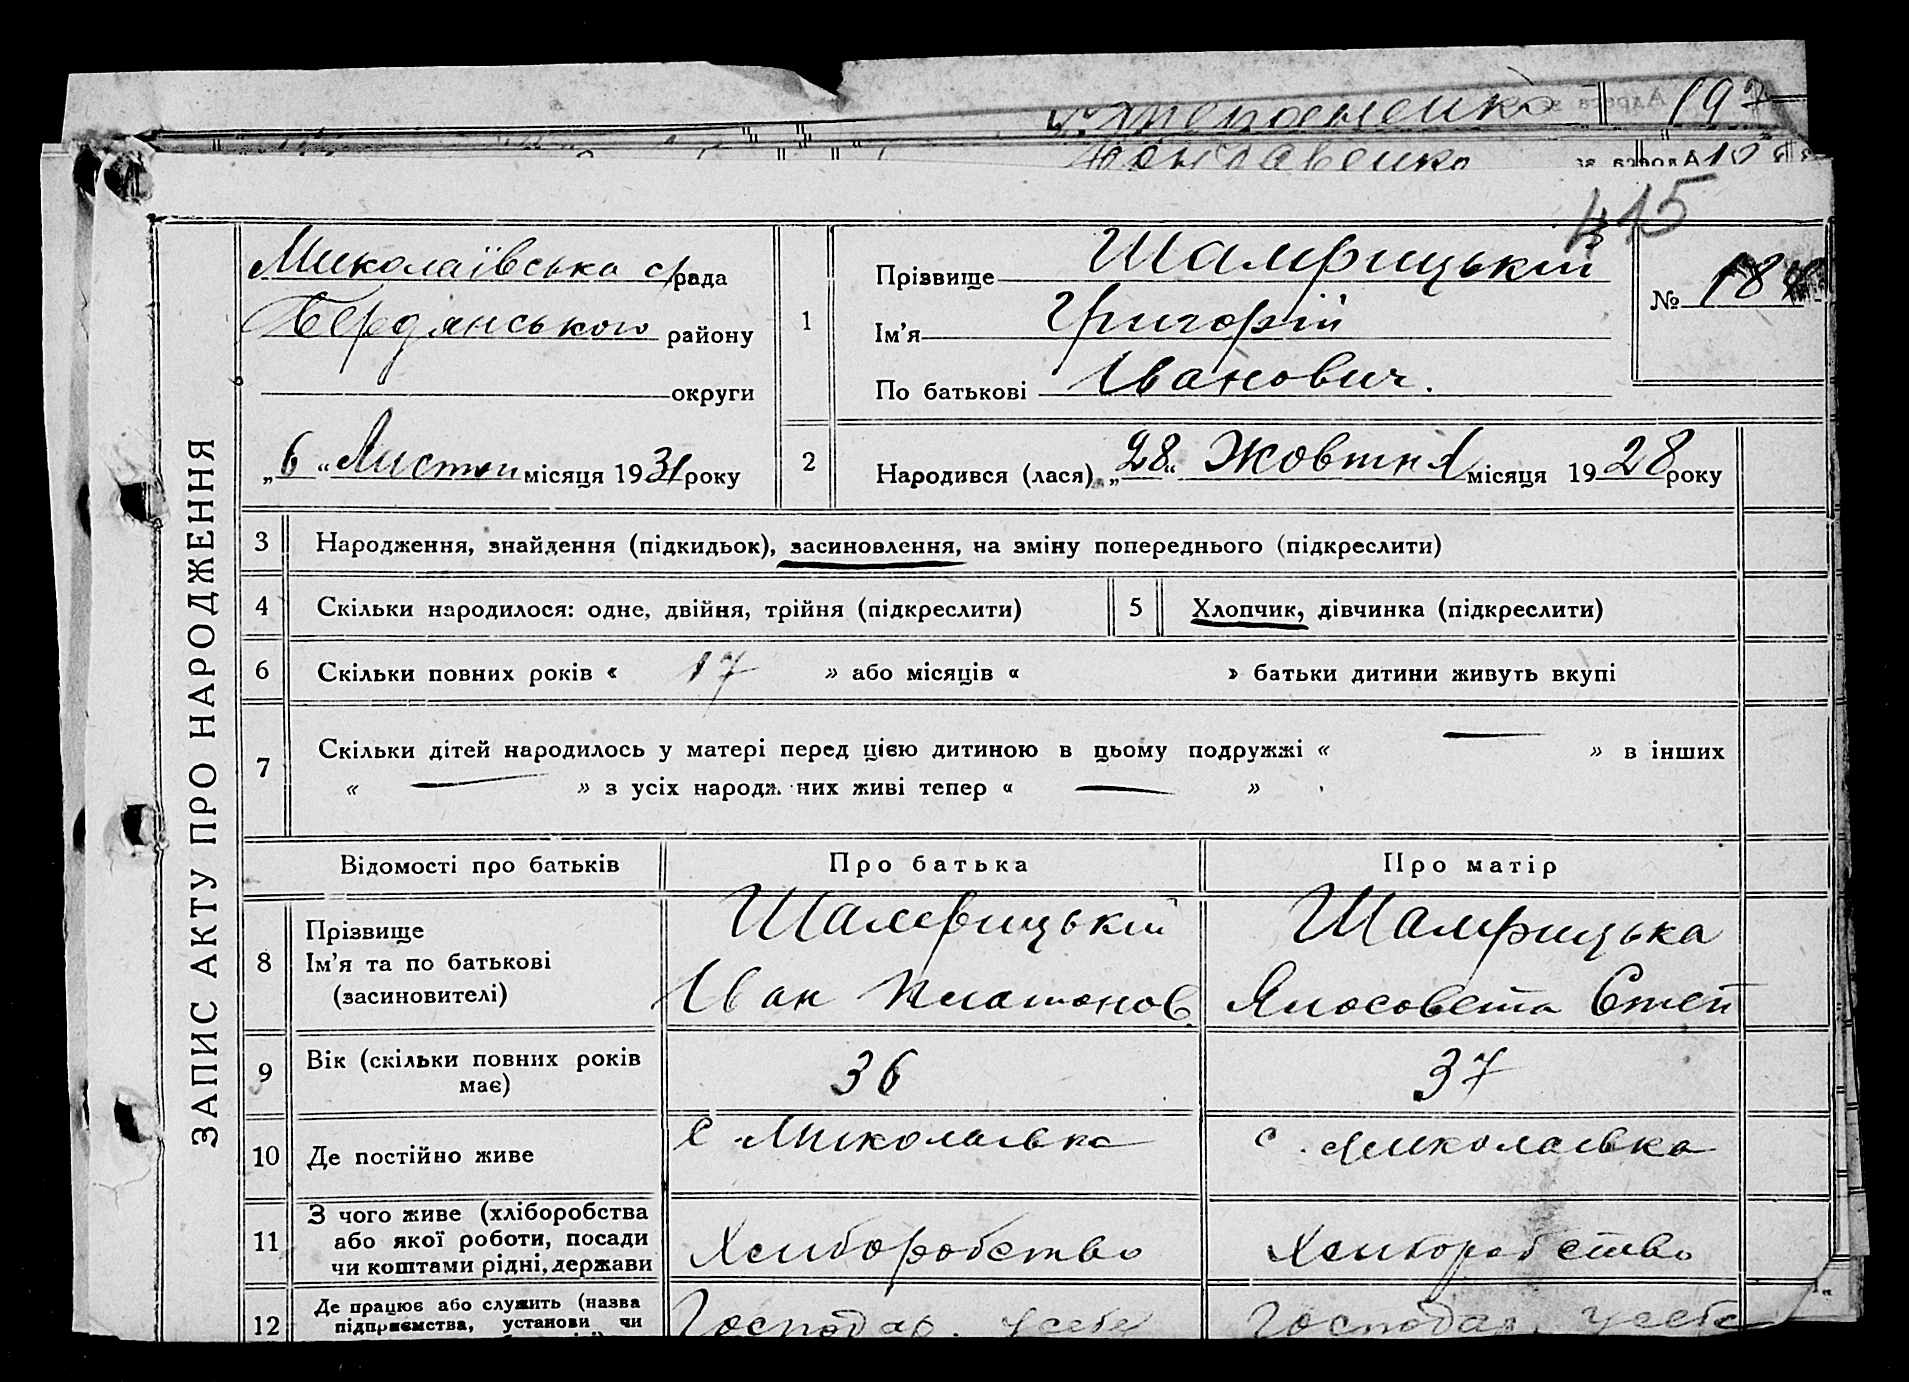 415
ЗАПИС АКТУ ПРО НАРОДЖЕННЯ
Миколаївська с/рада
Бердянського району
округи
„6“ Листоп місяця 1931 року
1
Прізвище Шамрицький
Ім'я Григорій
По батькові Іванович.
№ 18
2
Народився (лася) „28“ Жовтня місяця 1928 року
3 Народження, знайдення (підкидьок), засиновлення, на зміну попереднього (підкреслити)
4 Скільки народилося: одне, двійня, трійня (підкреслити)
5 Хлопчик, дівчинка (підкреслити)
6 Скільки повних років « 17 » або місяців « » батьки дитини живуть вкупі
7 Скільки дітей народилось у матері перед цією дитиною в цьому подружжі « — » в інших
« — » з усіх народж. них живі тепер « — »
Відомості про батьків Про батька Про матір
8 Прізвище
Ім'я та по батькові
(засиновителі)
Шамрицький
Іван Платонов.
Шамрицька
Ялосовета Степ
9 Вік (скільки повних років має) 36 37
10 Де постійно живе с Миколаівка с. Миколаівка
11 З чого живе (хліборобства
або якої роботи, посади
чи коштами рідні, держави
Хлиборобство Хлиборобство
12 Де працює або служить (назва
підприємства, установи чи
Господар. усебе Господар. усебе